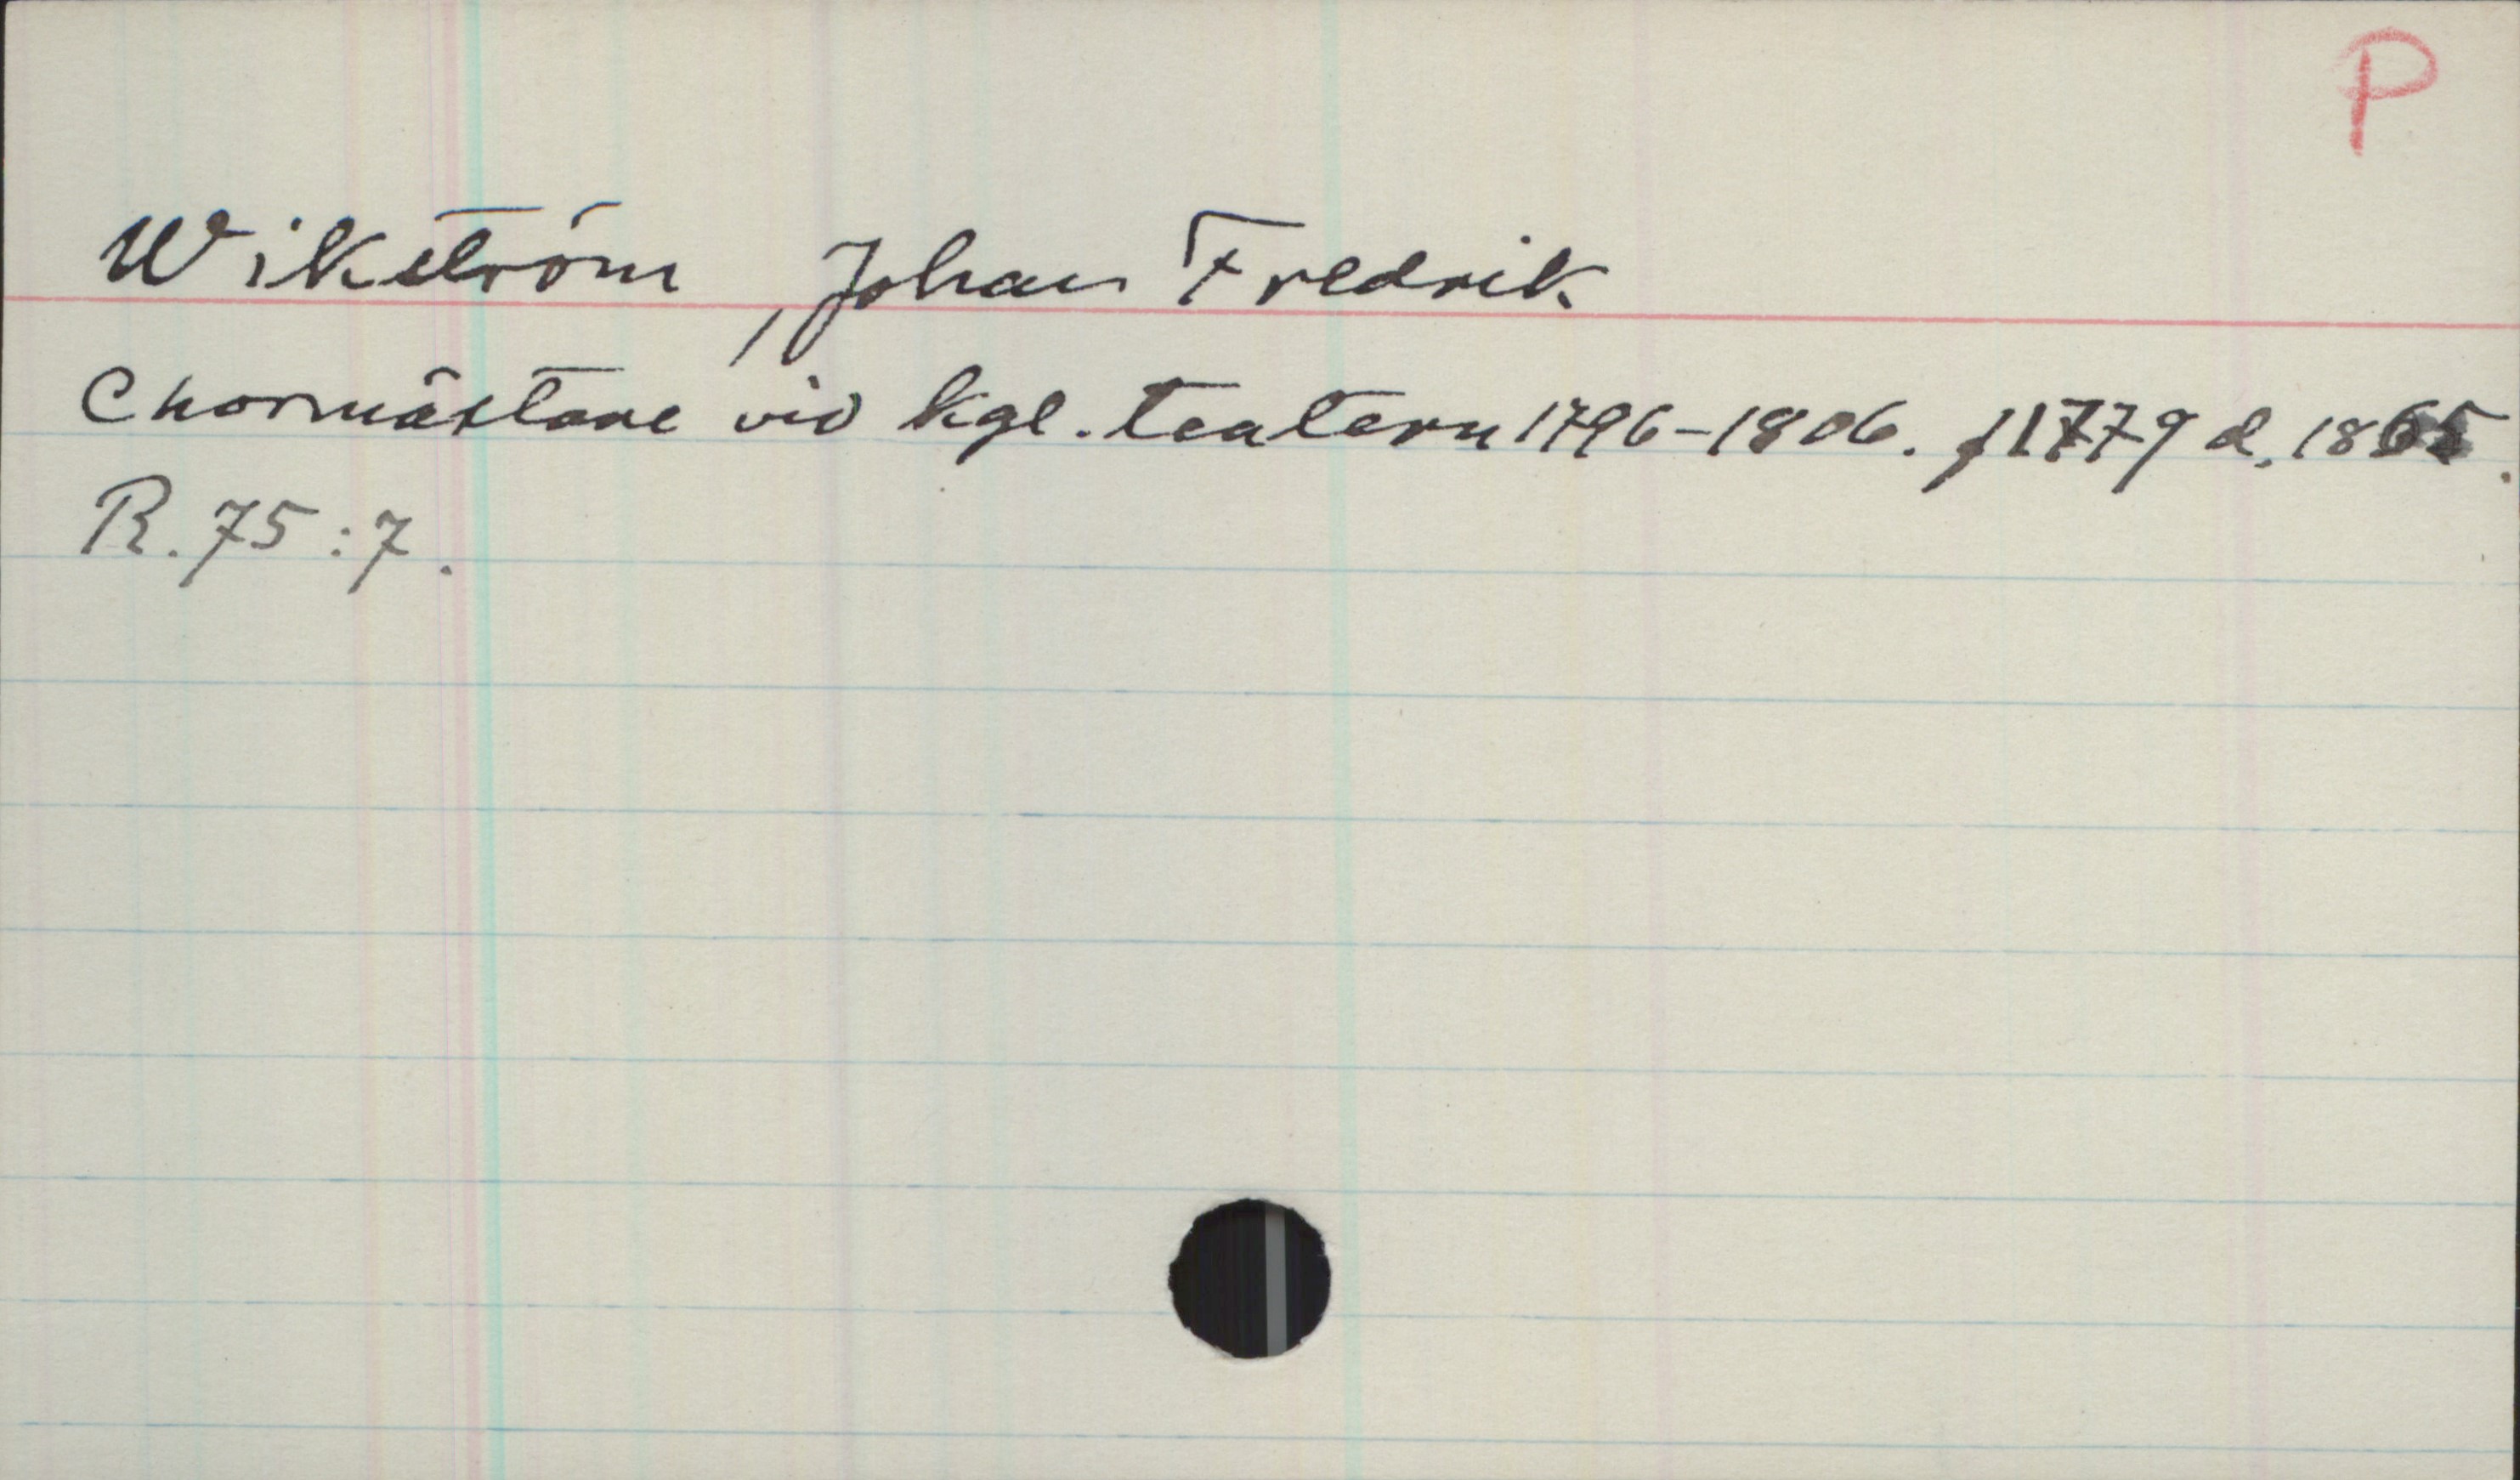 P
Wikström, Johan Fredrik
Chormästare vid kgl. teatern 1796-1806. f 1779 d. 1865.
R. 75:7.